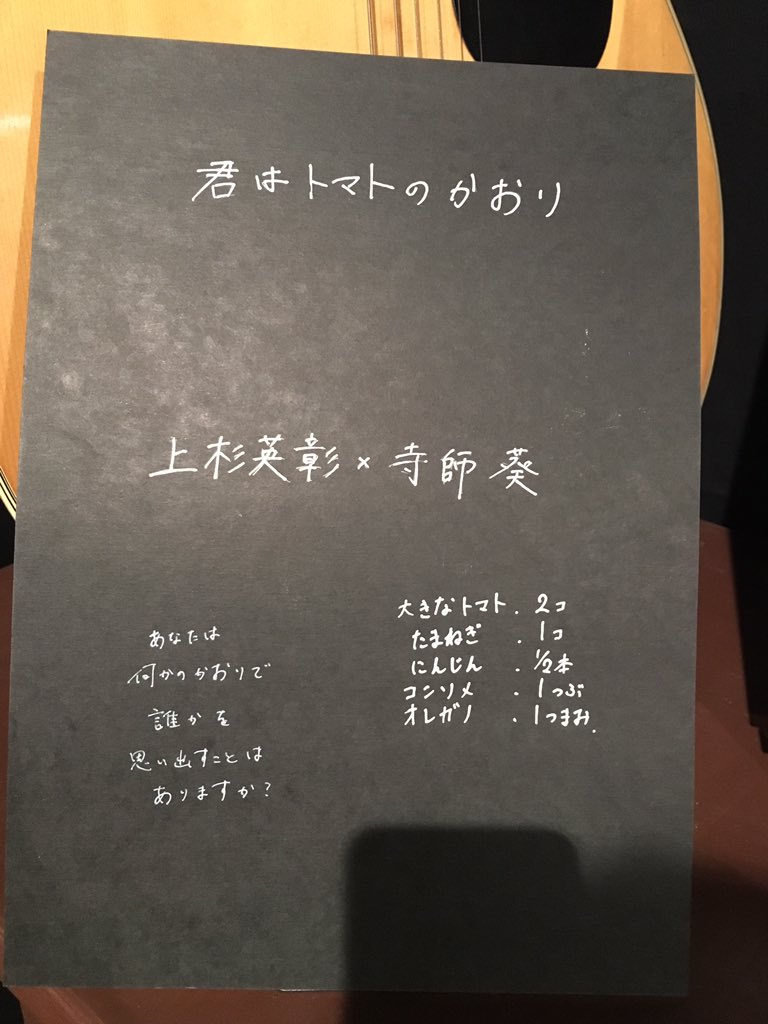 君はトマトのかおり
上杉英彰×寺師 葵
あなたは
何かのかおりで
誰かを
思い出すことは
ありますか?
大きなトマト . 2コ
たまねぎ . 1コ
にんじん . 1/2本
コンソメ . 1つぶ
オレガノ . 1つまみ.